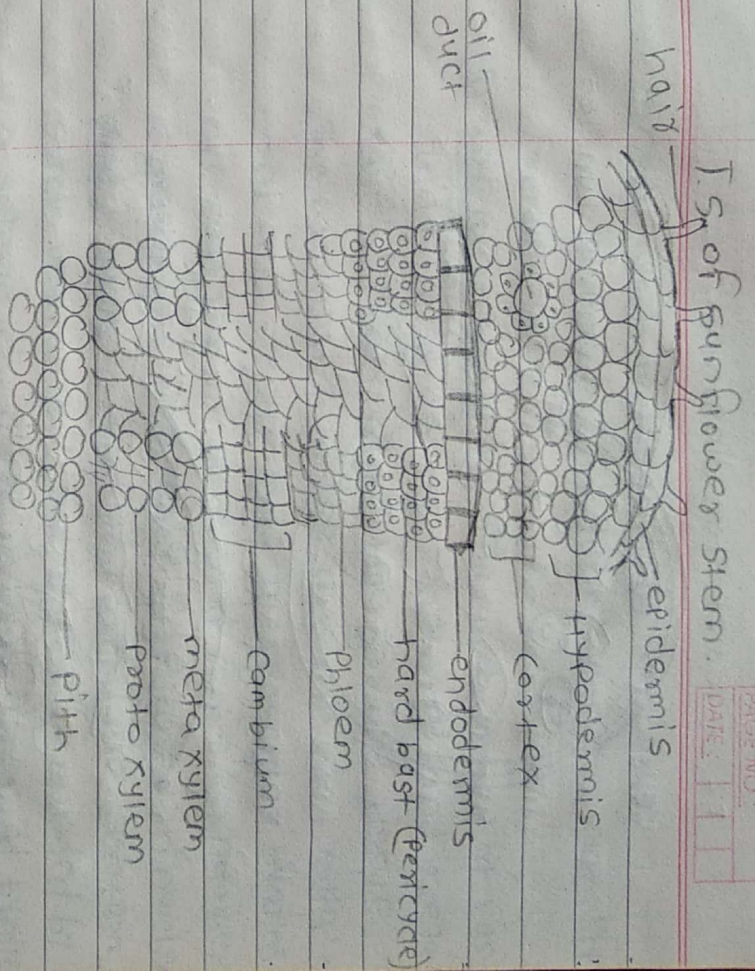 T.S. of sunflower stem.
DATE:
hair
oil
duct
epidermis
Hypodermis
Cortex
endodermis
hard bast (Pericycle)
Phloem
Cambium
meta xylem
proto xylem
Pith